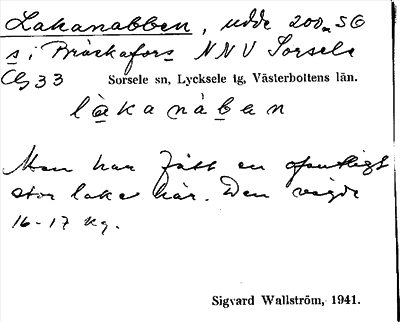 Lakanabben, udde 200m SG
s i Bräskafors NNV Sorsele
Cb 33 Sorsele sn, Lycksele tg, Västerbottens län.
làkanàben
Man har fått en ofantligt
stor lake här. Den vägde
16-17 kg.
Sigvard Wallström, 1941.